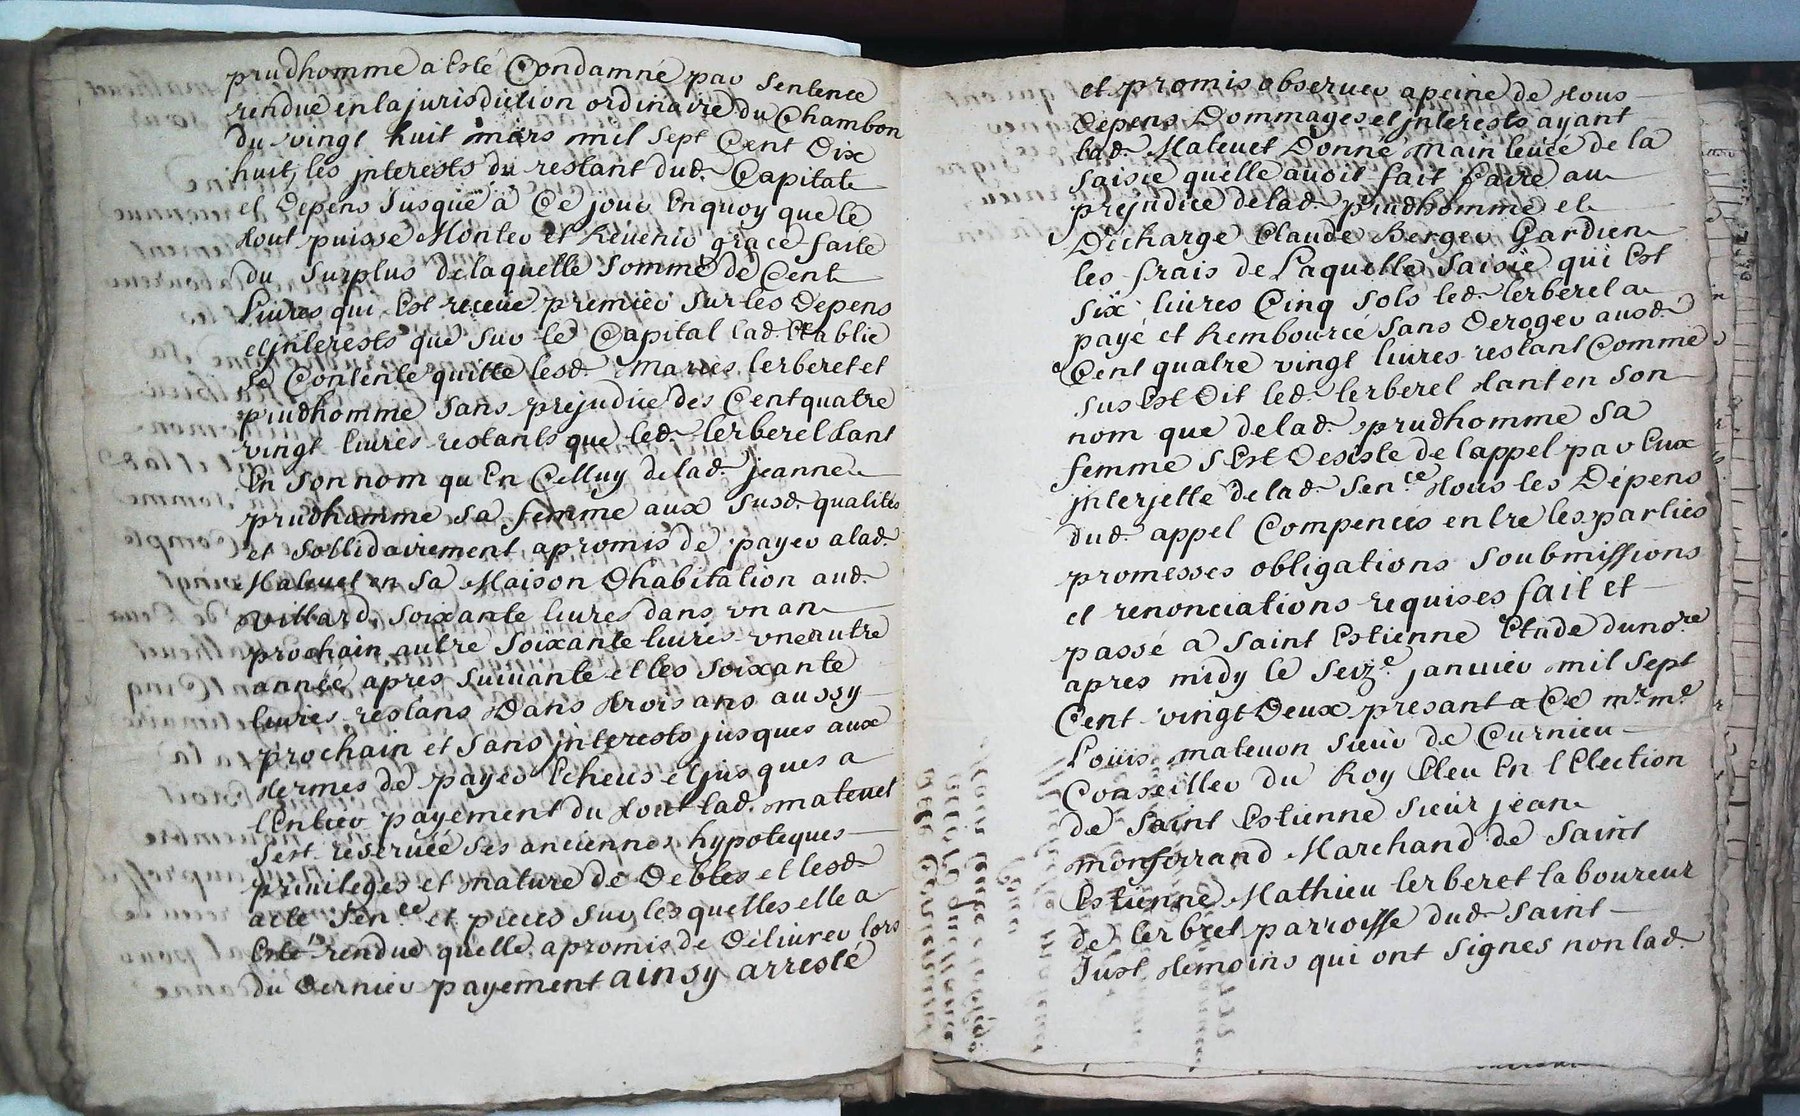 prudhomme a Esté Condamné par Sentence
rendue en la jurisdiction ordinaire du Chambon
du vingt huit mars mil sept Cent Dix
huit, les jnterests du restant dud. Capital
et Depens Jusque a Ce jour En quoy que le
tout puisse Monter et Revenir grace faite
du surplus de laquelle somme de Cent
Livres qui Est receüe premier sur les Depens
et jnterests que sur le Capital lad. Etablie
se Contente quitte lesd. Mariés lerberet et
prudhomme sans prejudice des Cent quatre
vingt livres restants que led. lerberet tant
En son nom qu En Celluy de lad. jeanne
prudhomme sa femme aux susd. qualités
et sollidairement a promis de payer a lad.
Matevet en sa Maison Dhabitation aud.
villard, soixante livres dans vn an
prochain autre soixante livres vne autre
année apres suivante et les soixante
livres restans Dans trois ans aussy
prochain et sans jnterests jusques aux
termes de payer Echeus et jusques a
lEntier payement du tout lad. matevet
sest reservée ses anciennes hypoteques
privileges et nature de Debtes et lesd.
acte Sen.ce et pieces sur lesquelles elle a
Esté rendue quelle a promis de Delivrer lors
du Dernier payement ainsy arresté
et promis observer a peine de tous
Depens Dommages et jnterests ayant
lad. Matevet Donné main levée de la
saisie quelle avoit fait faire au
prejudice de lad. prudhomme et
Décharge Claude Berger Gardien
les frais de Laquelle saisie qui Est
six livres Cinq sols led. lerberet a
payé et Rembourcé sans Deroger ausd.
Cent quatre vingt livres restant Comme
sus Est Dit led. lerberet tant en son
nom que de lad. prudhomme sa
femme s Est Desisté de lappel par Eux
jnterjetté de lad. Sen.ce tous les Dépens
dud. appel Compencés entre les parties
promesses obligations soubmissions
et renonciations requises fait et
passé a saint Estienne Etude du no.re
apres midy le seiz.e janvier mil sept
Cent vingt Deux presant a Ce m.r m.e
Louis matevon sieur de Curnieu
Conseiller du Roy Eleu En l Election
de saint Estienne sieur jean
monferrand Marchand de saint
Estienne Mathieu lerberet laboureur
de lerbret parroisse dud. saint
Just temoins qui ont signes non lad.